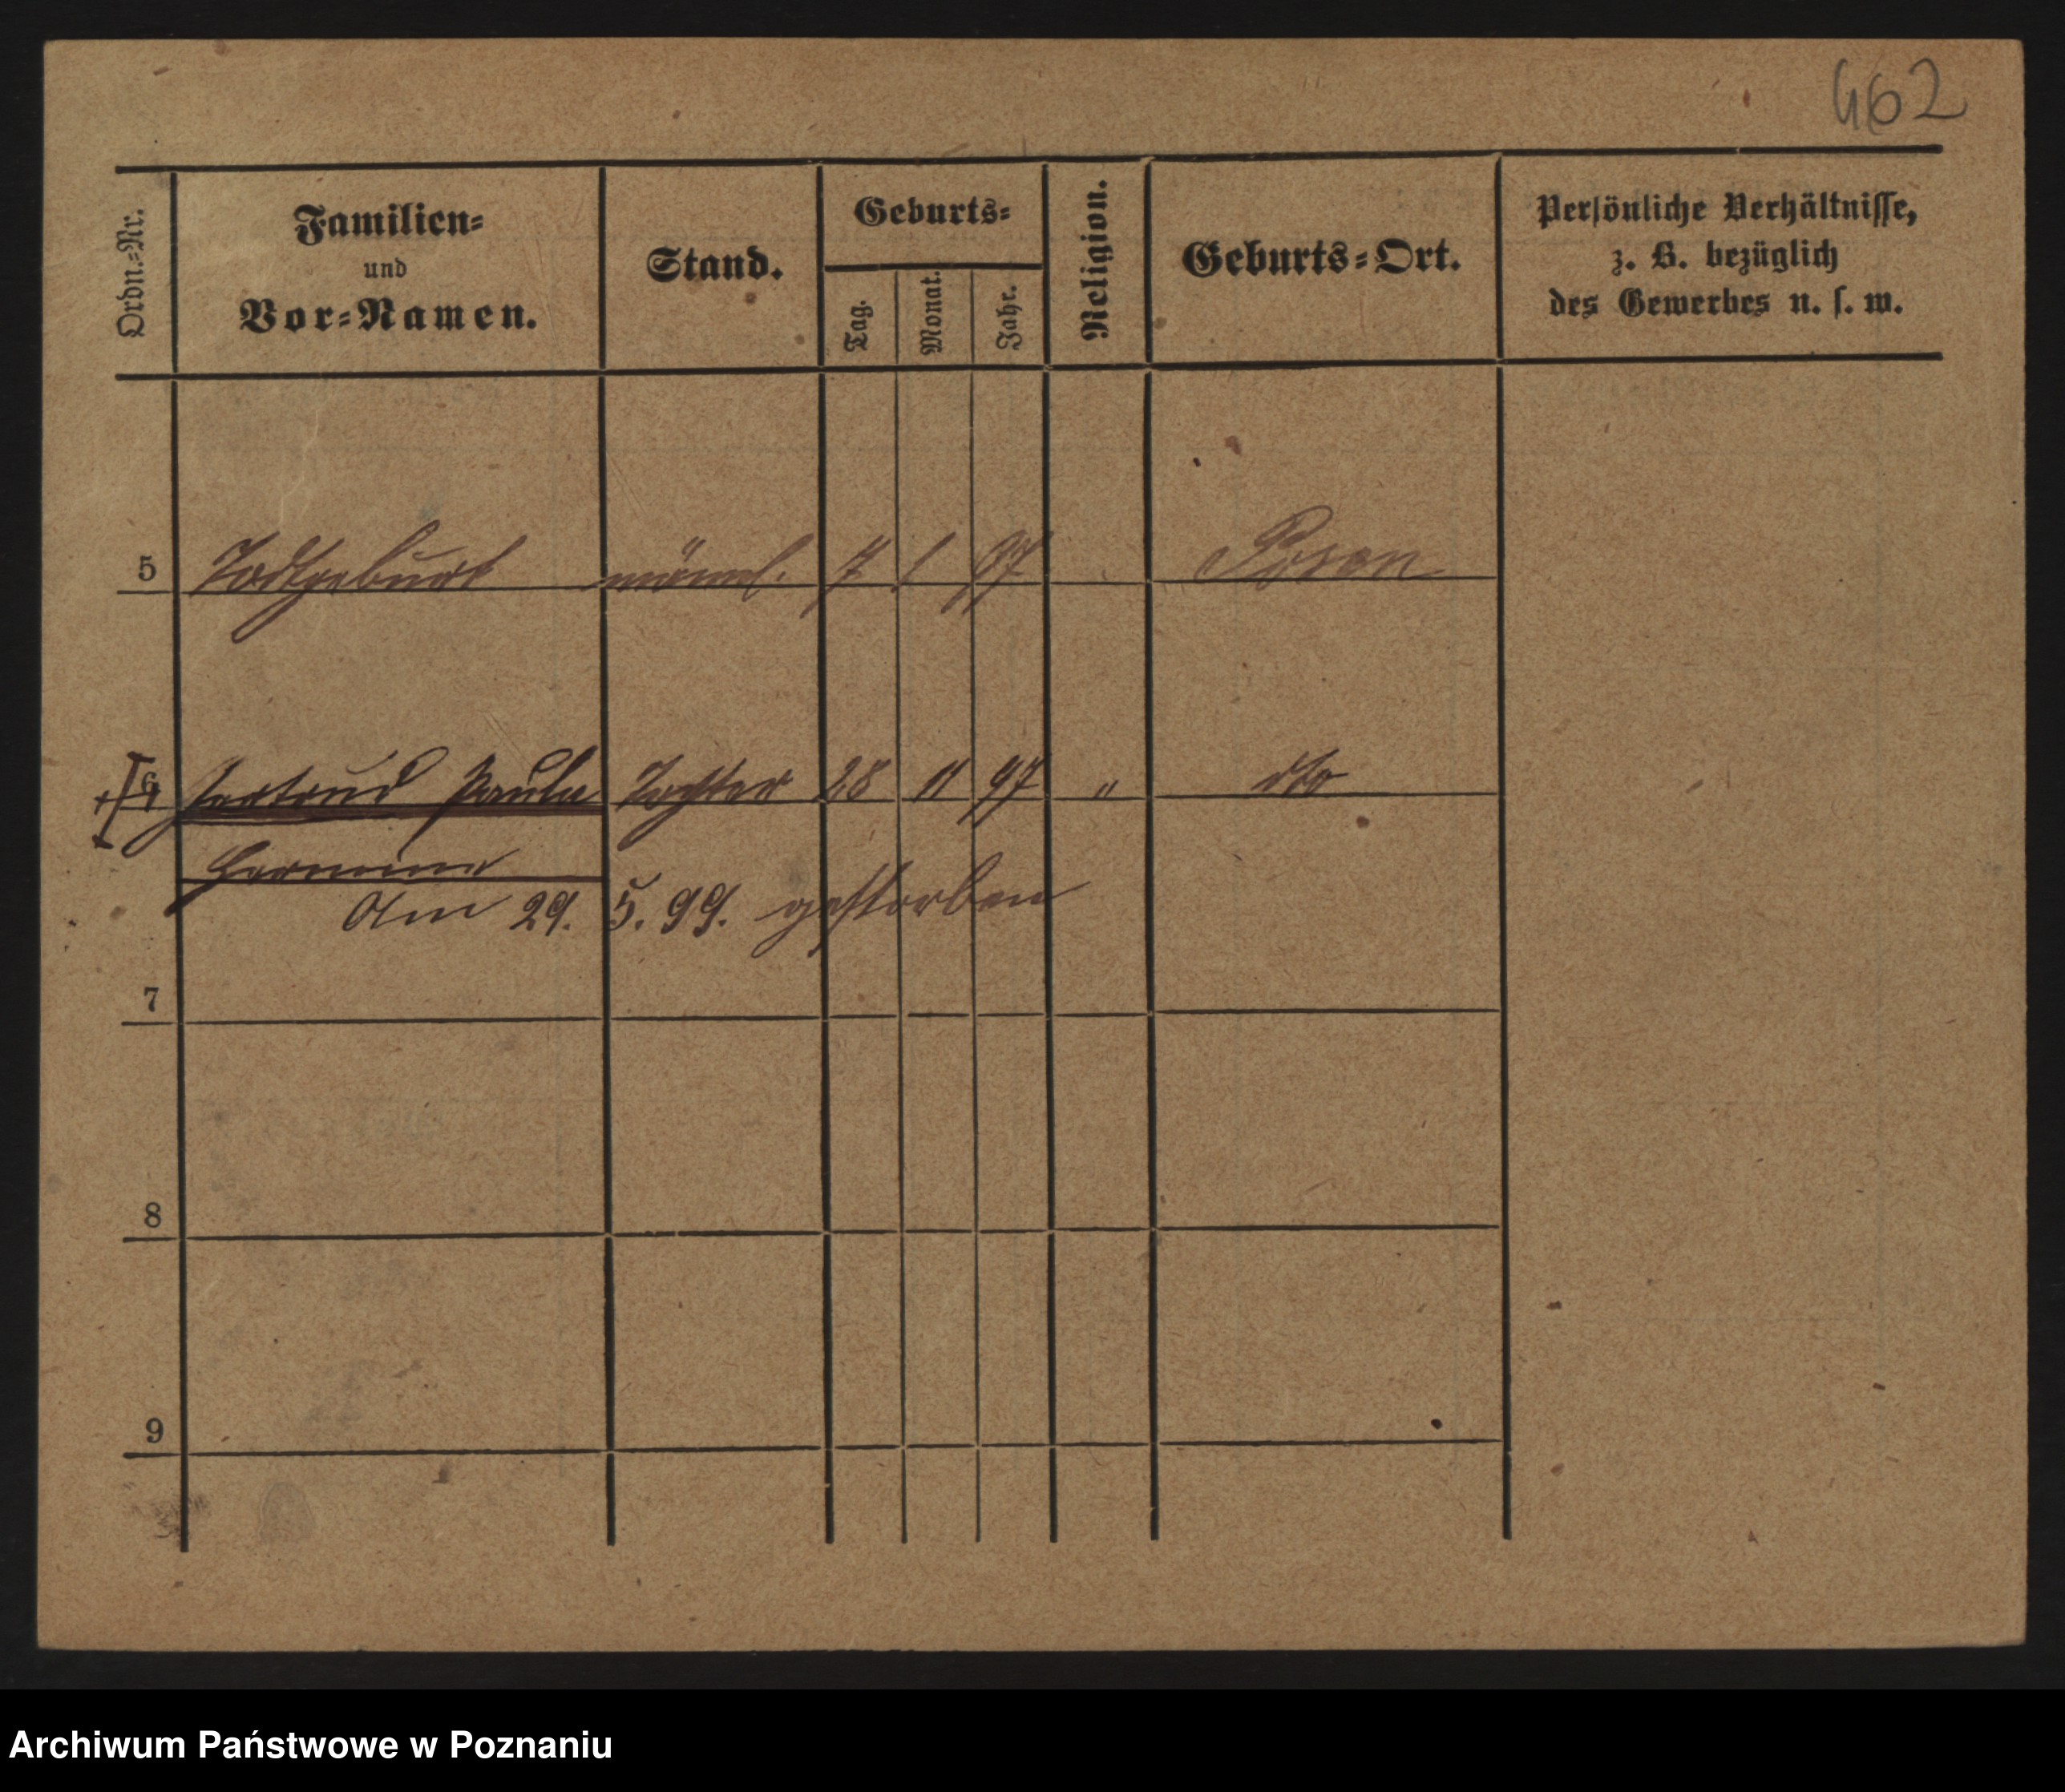 462
Ordn.-Nr.
Familien-
und
Vor-Namen.
Stand.
Geburts-
Tag.
Monat.
Jahr.
Religion.
Geburts-Ort.
Persönliche Verhältnisse,
z. B. bezüglich
des Gewerbes u. s. w.
5 Todtgeburt männl. 7 1 97 Posen
6 Gertrud Paula Tochter 28 11 97 " dto
Hermine
Am 29. 5. 99. gestorben
7
8
9
Archiwum Państwowe w Poznaniu